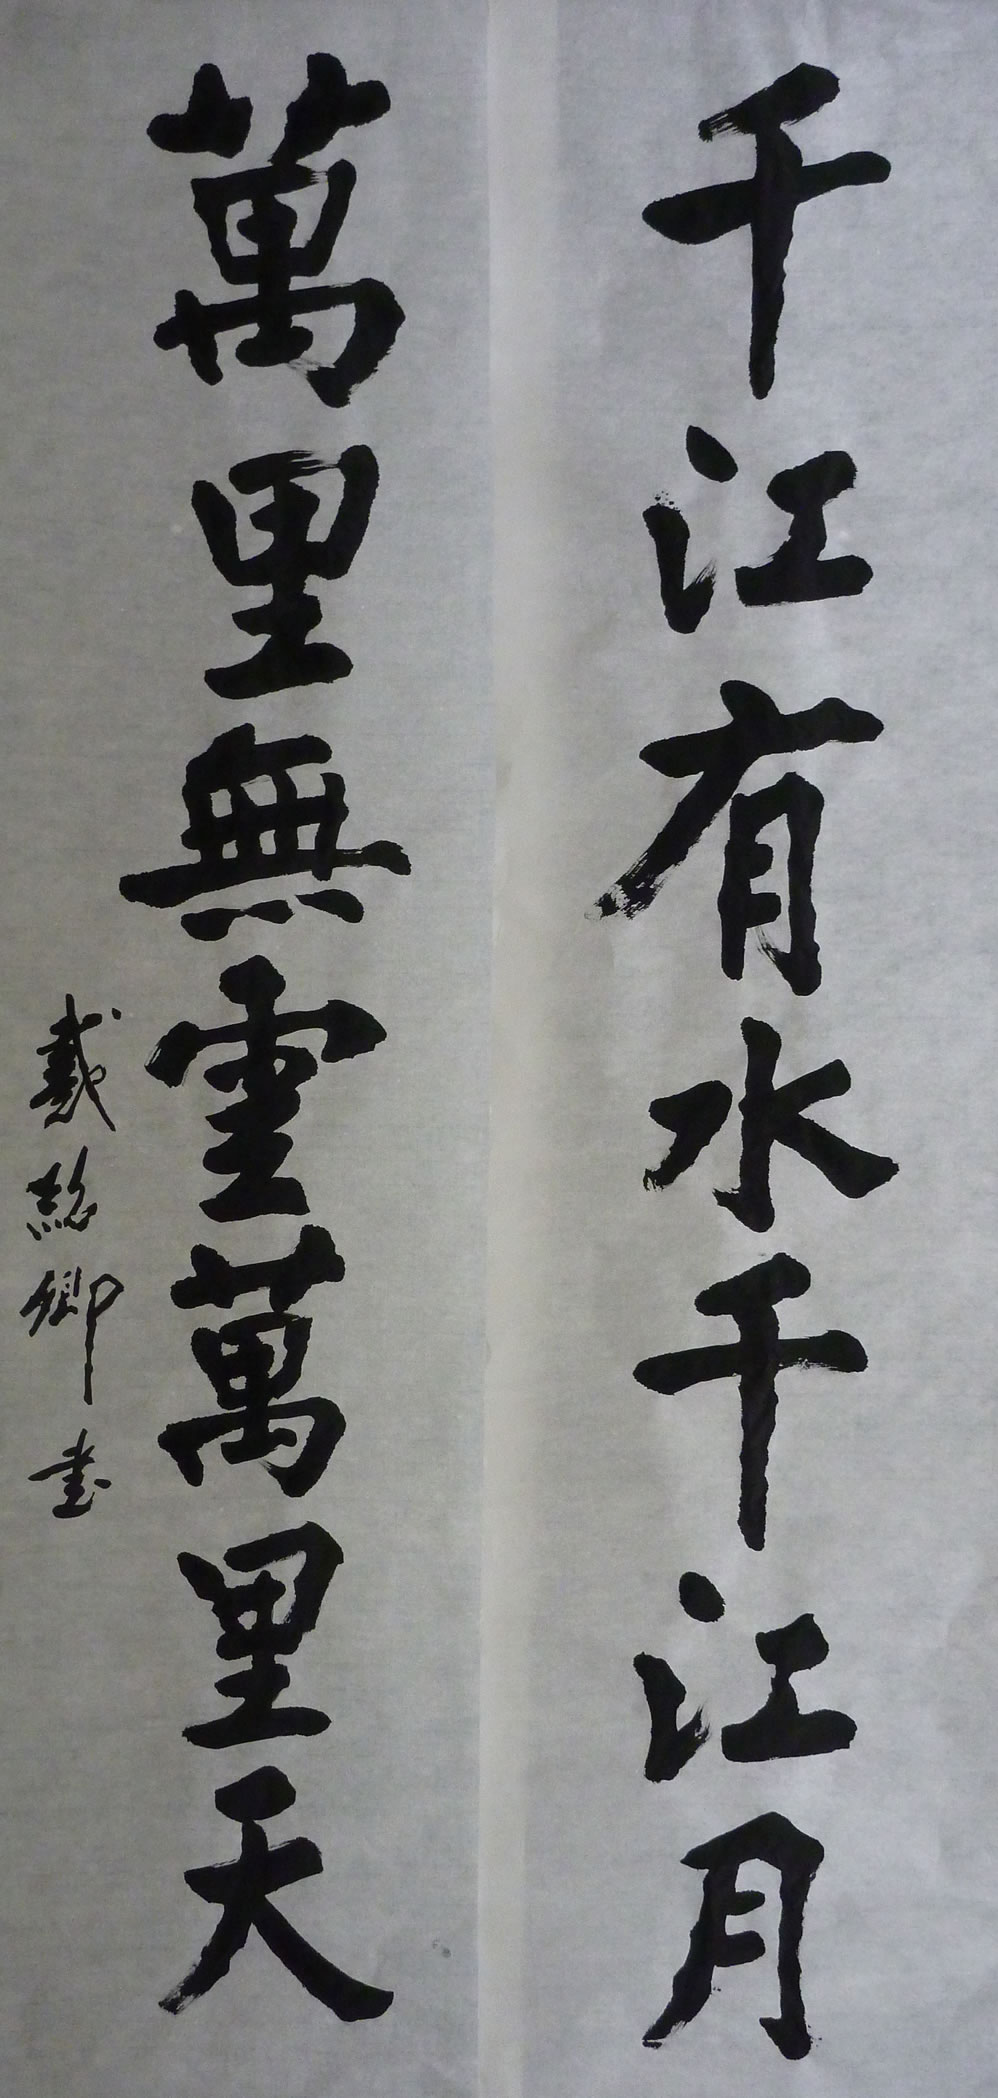 千江有水千江月
萬里無雲萬里天
戴 卿書